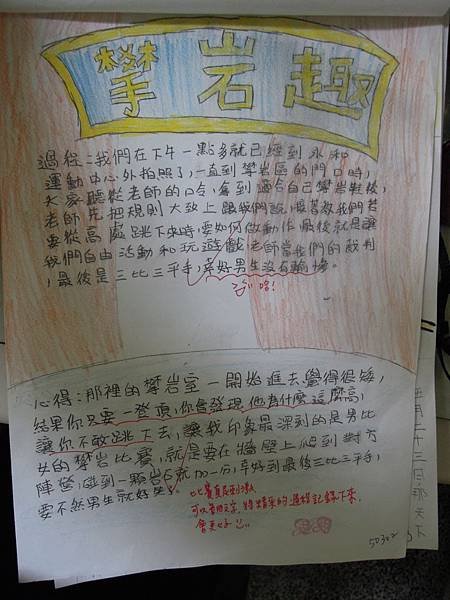 攀岩趣
過程:我們在下午一點多就已經到永和
運動中心外拍照了,一直到攀岩區的門口時,
大家聽從老師的口令,拿到適合自己攀岩鞋後,
老師先把規則大致上跟我們說,接著教我們若
要從高處跳下來時,要如何做動作,最後就是讓
我們自由活動和玩遊戲,老師當我們的裁判
,最後是三比三平手,幸好男生沒有輸
哈!
心得:那裡的攀岩室一開始進去覺得很矮,
結果你只要一登頂,你會發現他為什麼這麼高,
讓你不敢跳下去,讓我印象最深刻的是男比
女的攀岩比賽,就是要在牆壁上爬到對方
陣營,碰到一顆岩石就加一分,幸好到最後三比三平手,
要不然男生就好
比賽真刺激
可以 精采的過程記錄下來,
會更好
50302
月二十三日那天下